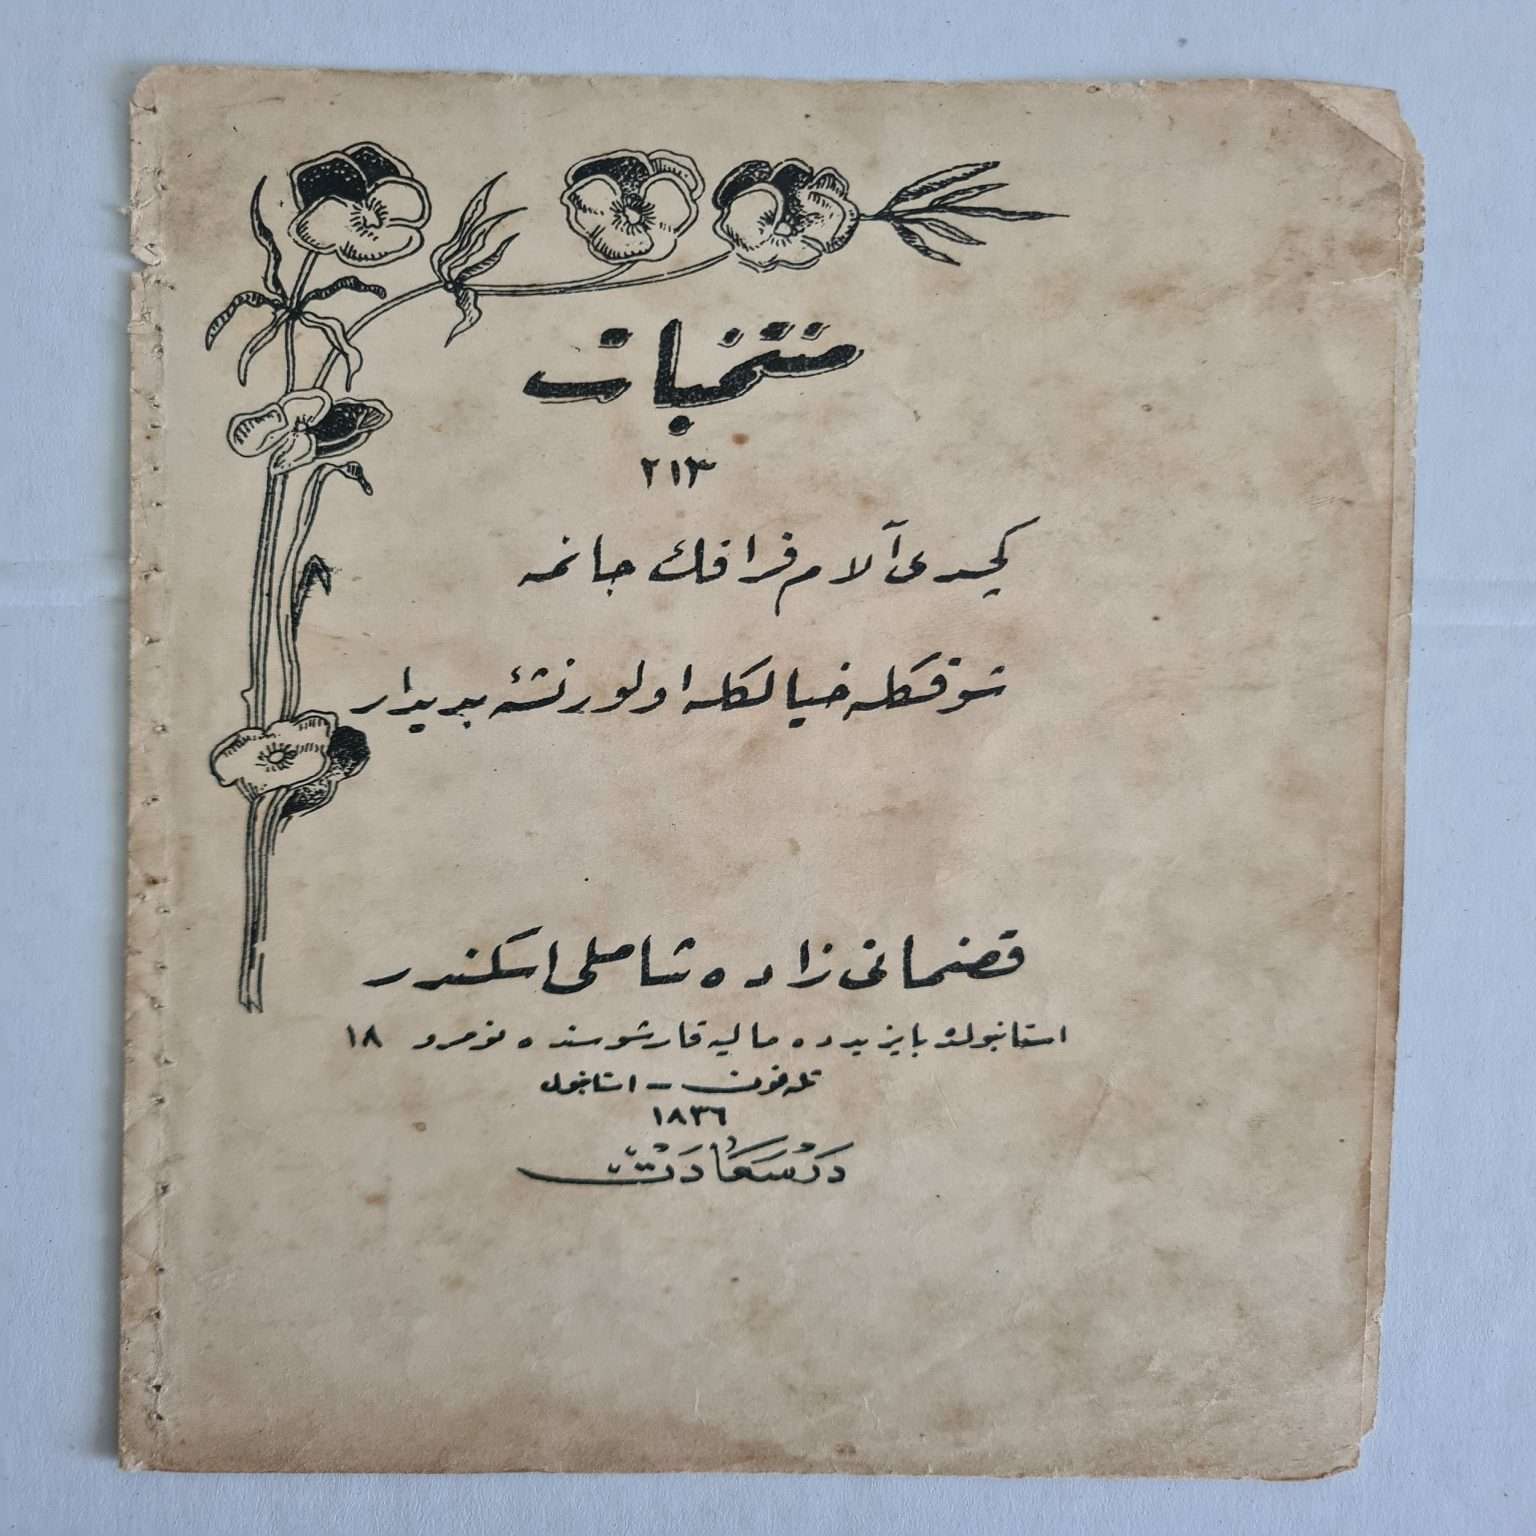 منتخبات
٢١٣
كچدی آلام فراقك جانمه
شوقكله خیالكله اولور نشئه بدیدار
قضمانی زاده شاملی اسكندر
استانبولده بایزیدده مالیه قارشوسنده نومرو ١٨
تله فون — استانبول
١٨٣٦
درسعادت